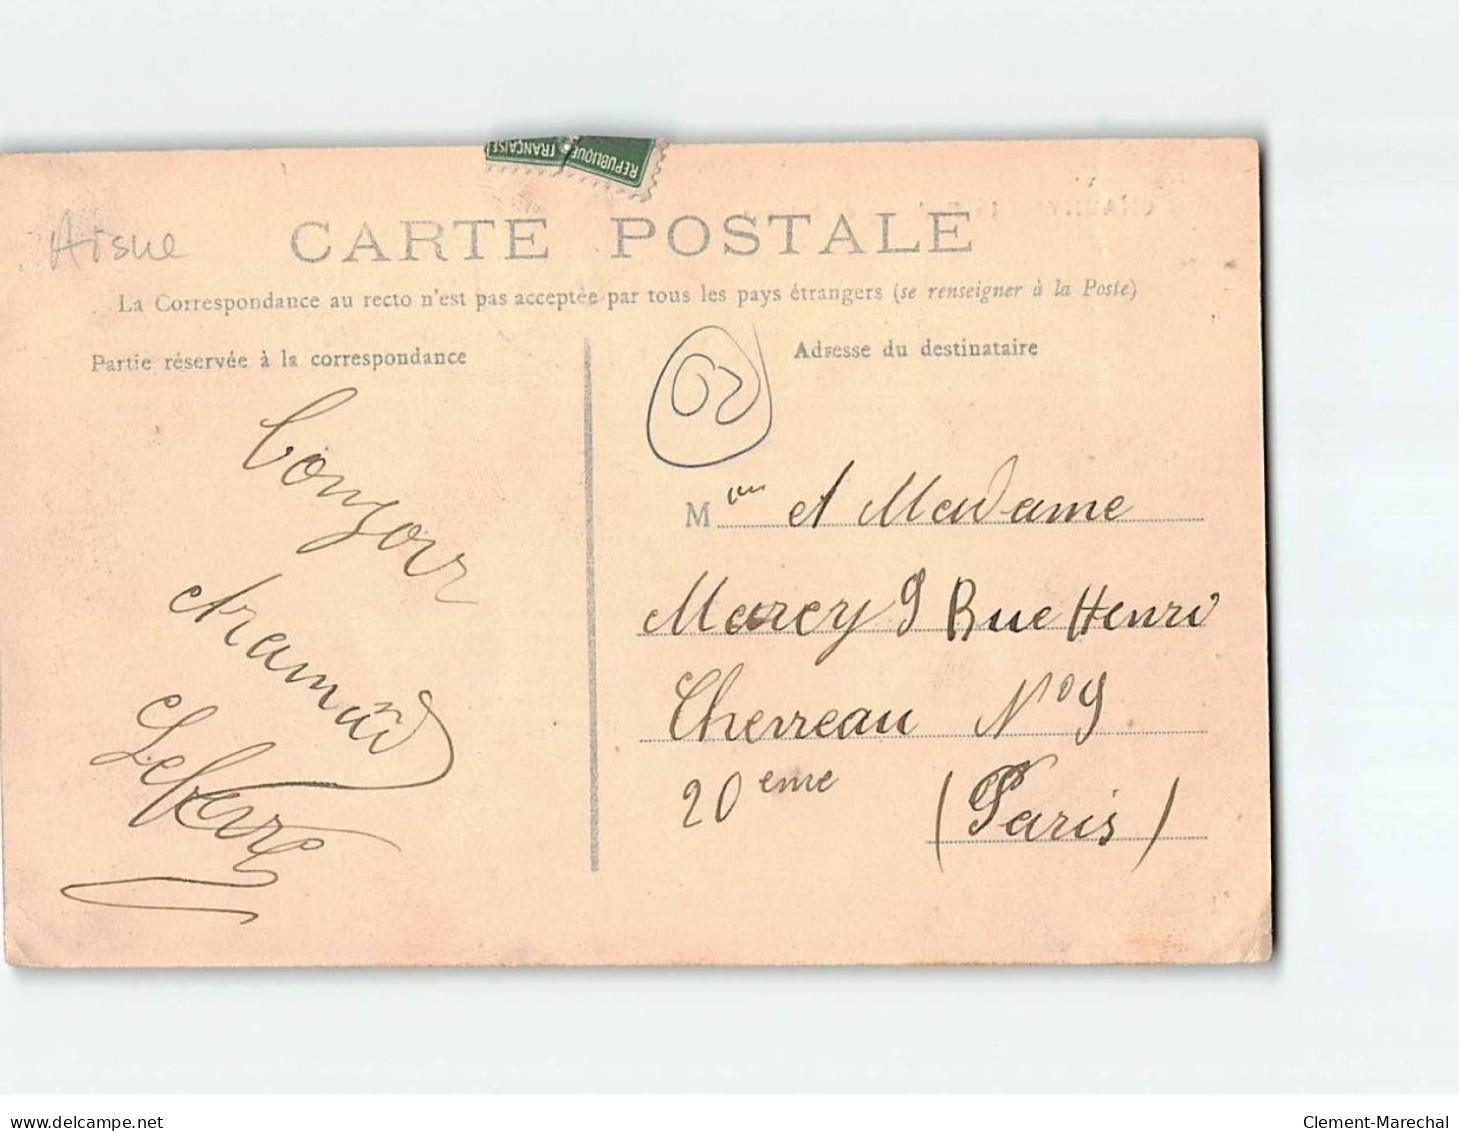 REPUBLIQUE FRANÇAISE
Aisne
CARTE POSTALE
La Correspondance au recto n'est pas acceptée par tous les pays étrangers (se renseigner à la Poste)
Partie réservée à la correspondance
Adresse du destinataire
02
bonjour
Lefevre
M et Madame
Marcy 9 Rue Henri
Cherreau N° 9
20 eme (Paris)
www.delcampe.net
Clement-Marechal